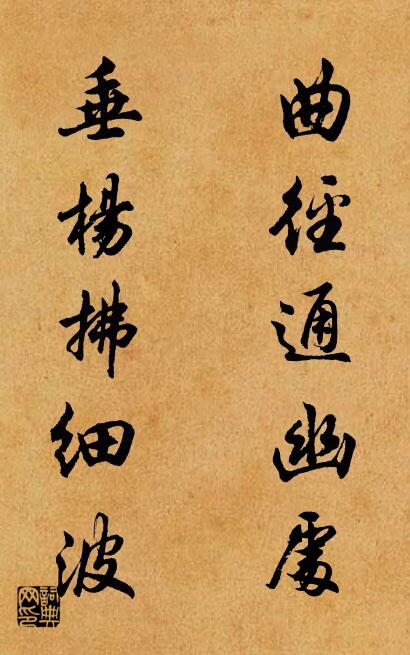 曲徑通幽處
垂楊拂細波
詞典網印